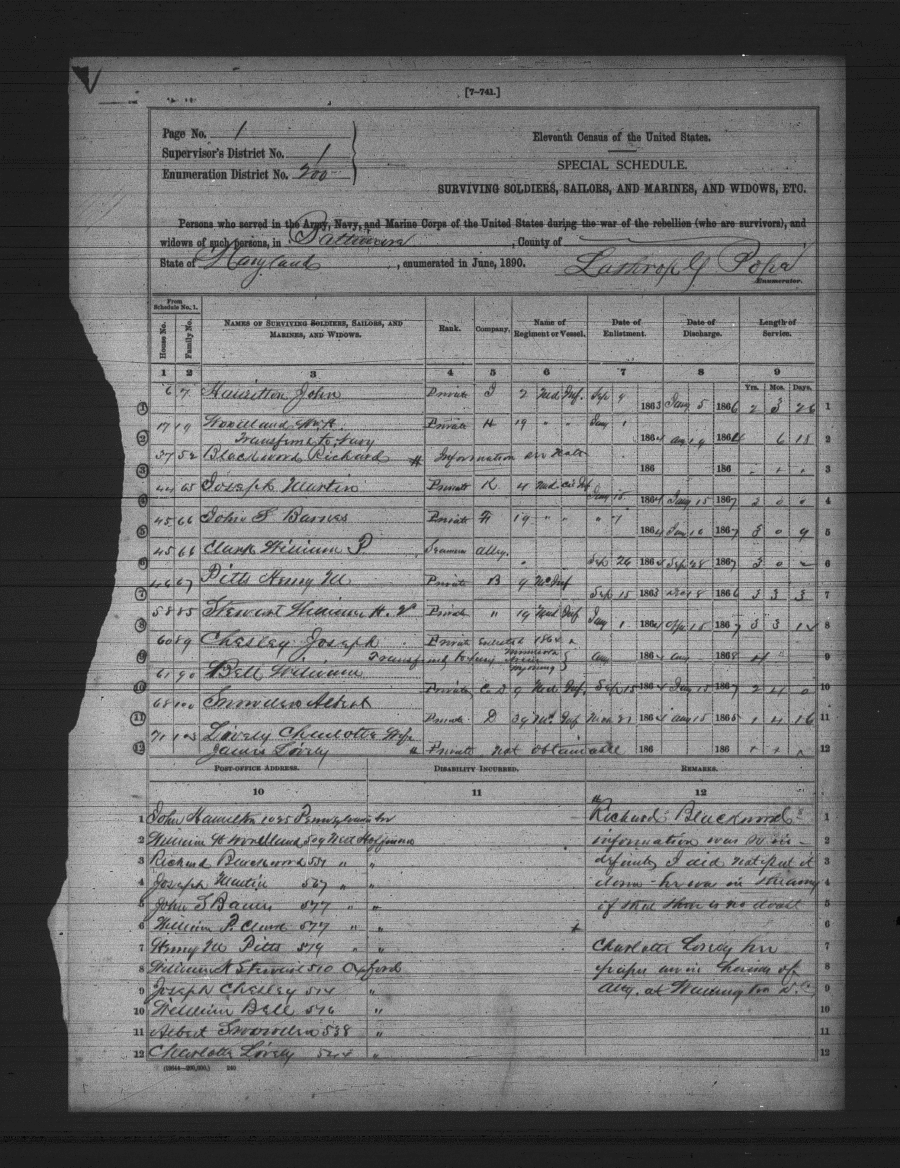 [7-741.]
Page No. 1
Supervisor's District No. 1
Enumeration District No. 200
Eleventh Census of the United States.
SPECIAL SCHEDULE.
SURVIVING SOLDIERS, SAILORS, AND MARINES, AND WIDOWS, ETC.
Persons who served in the Army, Navy, and Marine Corps of the United States during the war of the rebellion (who are survivors), and
widows of such persons, in Baltimore, County of
State of Maryland, enumerated in June, 1890.
Enumerator.
From Schedule No. 1.
House No. Family No. NAMES OF SURVIVING SOLDIERS, SAILORS, AND MARINES, AND WIDOWS. Rank. Company. Name of Regiment or Vessel. Date of Enlistment. Date of Discharge. Length of Service.
1 2 3 4 5 6 7 8 9
Yrs. Mos. Days.
6 7 Hamilton John Private I 2 Md Inf. Sep 9 1863 Jany 5 1866 2 3 26 1
17 19 Woodland Wm H. Private H 19 " " Jany 1
Transfered to Navy 1864 Aug 19 186 6 18 2
37 52 Blackwood Richard Information 186 186 3
44 65 Joseph Martin Private K 4 Jany 15 1864 Jany 15 1867 3 0 0 4
45 66 John S Barnes Private H 19 " " " 7 1864 Jan 16 1867 3 0 9 5
45 66 Clark William P Seaman Alleg. Sep 26 1864 Sep 28 1867 3 0 2 6
46 67 Pitts Henry M Private B 9 Inf Sep 15 1863 1866 3 3 3 7
58 85 Stewart William H. Private " 19 Md Inf Jany 1 1864 Apr 15 1867 3 3 14 8
60 89 Chesley Joseph Private Enlisted 1864
Transfered to Navy Minnesota Wyoming Aug 1864 Aug 1868 4 9
61 90 Bell William Private Co D 9 Md Inf. Sep 15 1864 Jany 15 1867 2 4 0 10
68 100 Snowden Albert Private D 39 Md Inf Mar 31 1864 Aug 15 1865 1 4 16 11
71 103 Lively Charlotte Wife
James Lively Private not obtainable 186 186 12
POST-OFFICE ADDRESS. DISABILITY INCURRED. REMARKS.
10 11 12
1 John Hamilton 1025 Pennsylvania av Richard Blackwood 1
2 William H Woodland 509 Hoffman information was so in- 2
3 Richard Blackwood 551 " " definite I did not put it 3
4 Joseph Martin 567 " " down - he was in the army 4
5 John S Barnes 577 " " of that there is no doubt 5
6 William P. Clark 577 " " 6
7 Henry M Pitts 579 " " Charlotte Lively her 7
8 William H Stewart 510 Oxford papers are in hands of 8
9 Joseph Chesley 514 " Atty. at Washington D.C. 9
10 William Bell 516 " 10
11 Albert Snowden 538 " 11
12 Charlotte Lively 544 " 12